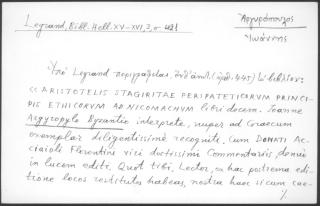 Legrand, Bibl. Hell. XV-XVI, 3, σ.
Ἀργυρόπουλος
Ἰωάννης
Legrand περιγράφεται,
« ARISTOTELIS STAGIRITAE PERIPATETICORUM PRINCI-
PIS ETHICORUM AD NICOMACHUM libri decem. Ioanne
Argyropylo Byzantio interprete, nuper ad Graecum
exemplar diligentissimè recogniti, Cum DONATI Ac-
ciaioli Florentini viri doctissimi Commentariis, denuò
in lucem editi. Quot tibi, Lector, ex hac postrema edi-
tione locos restitutos habeas, nostra haec sicum cae-
·/.